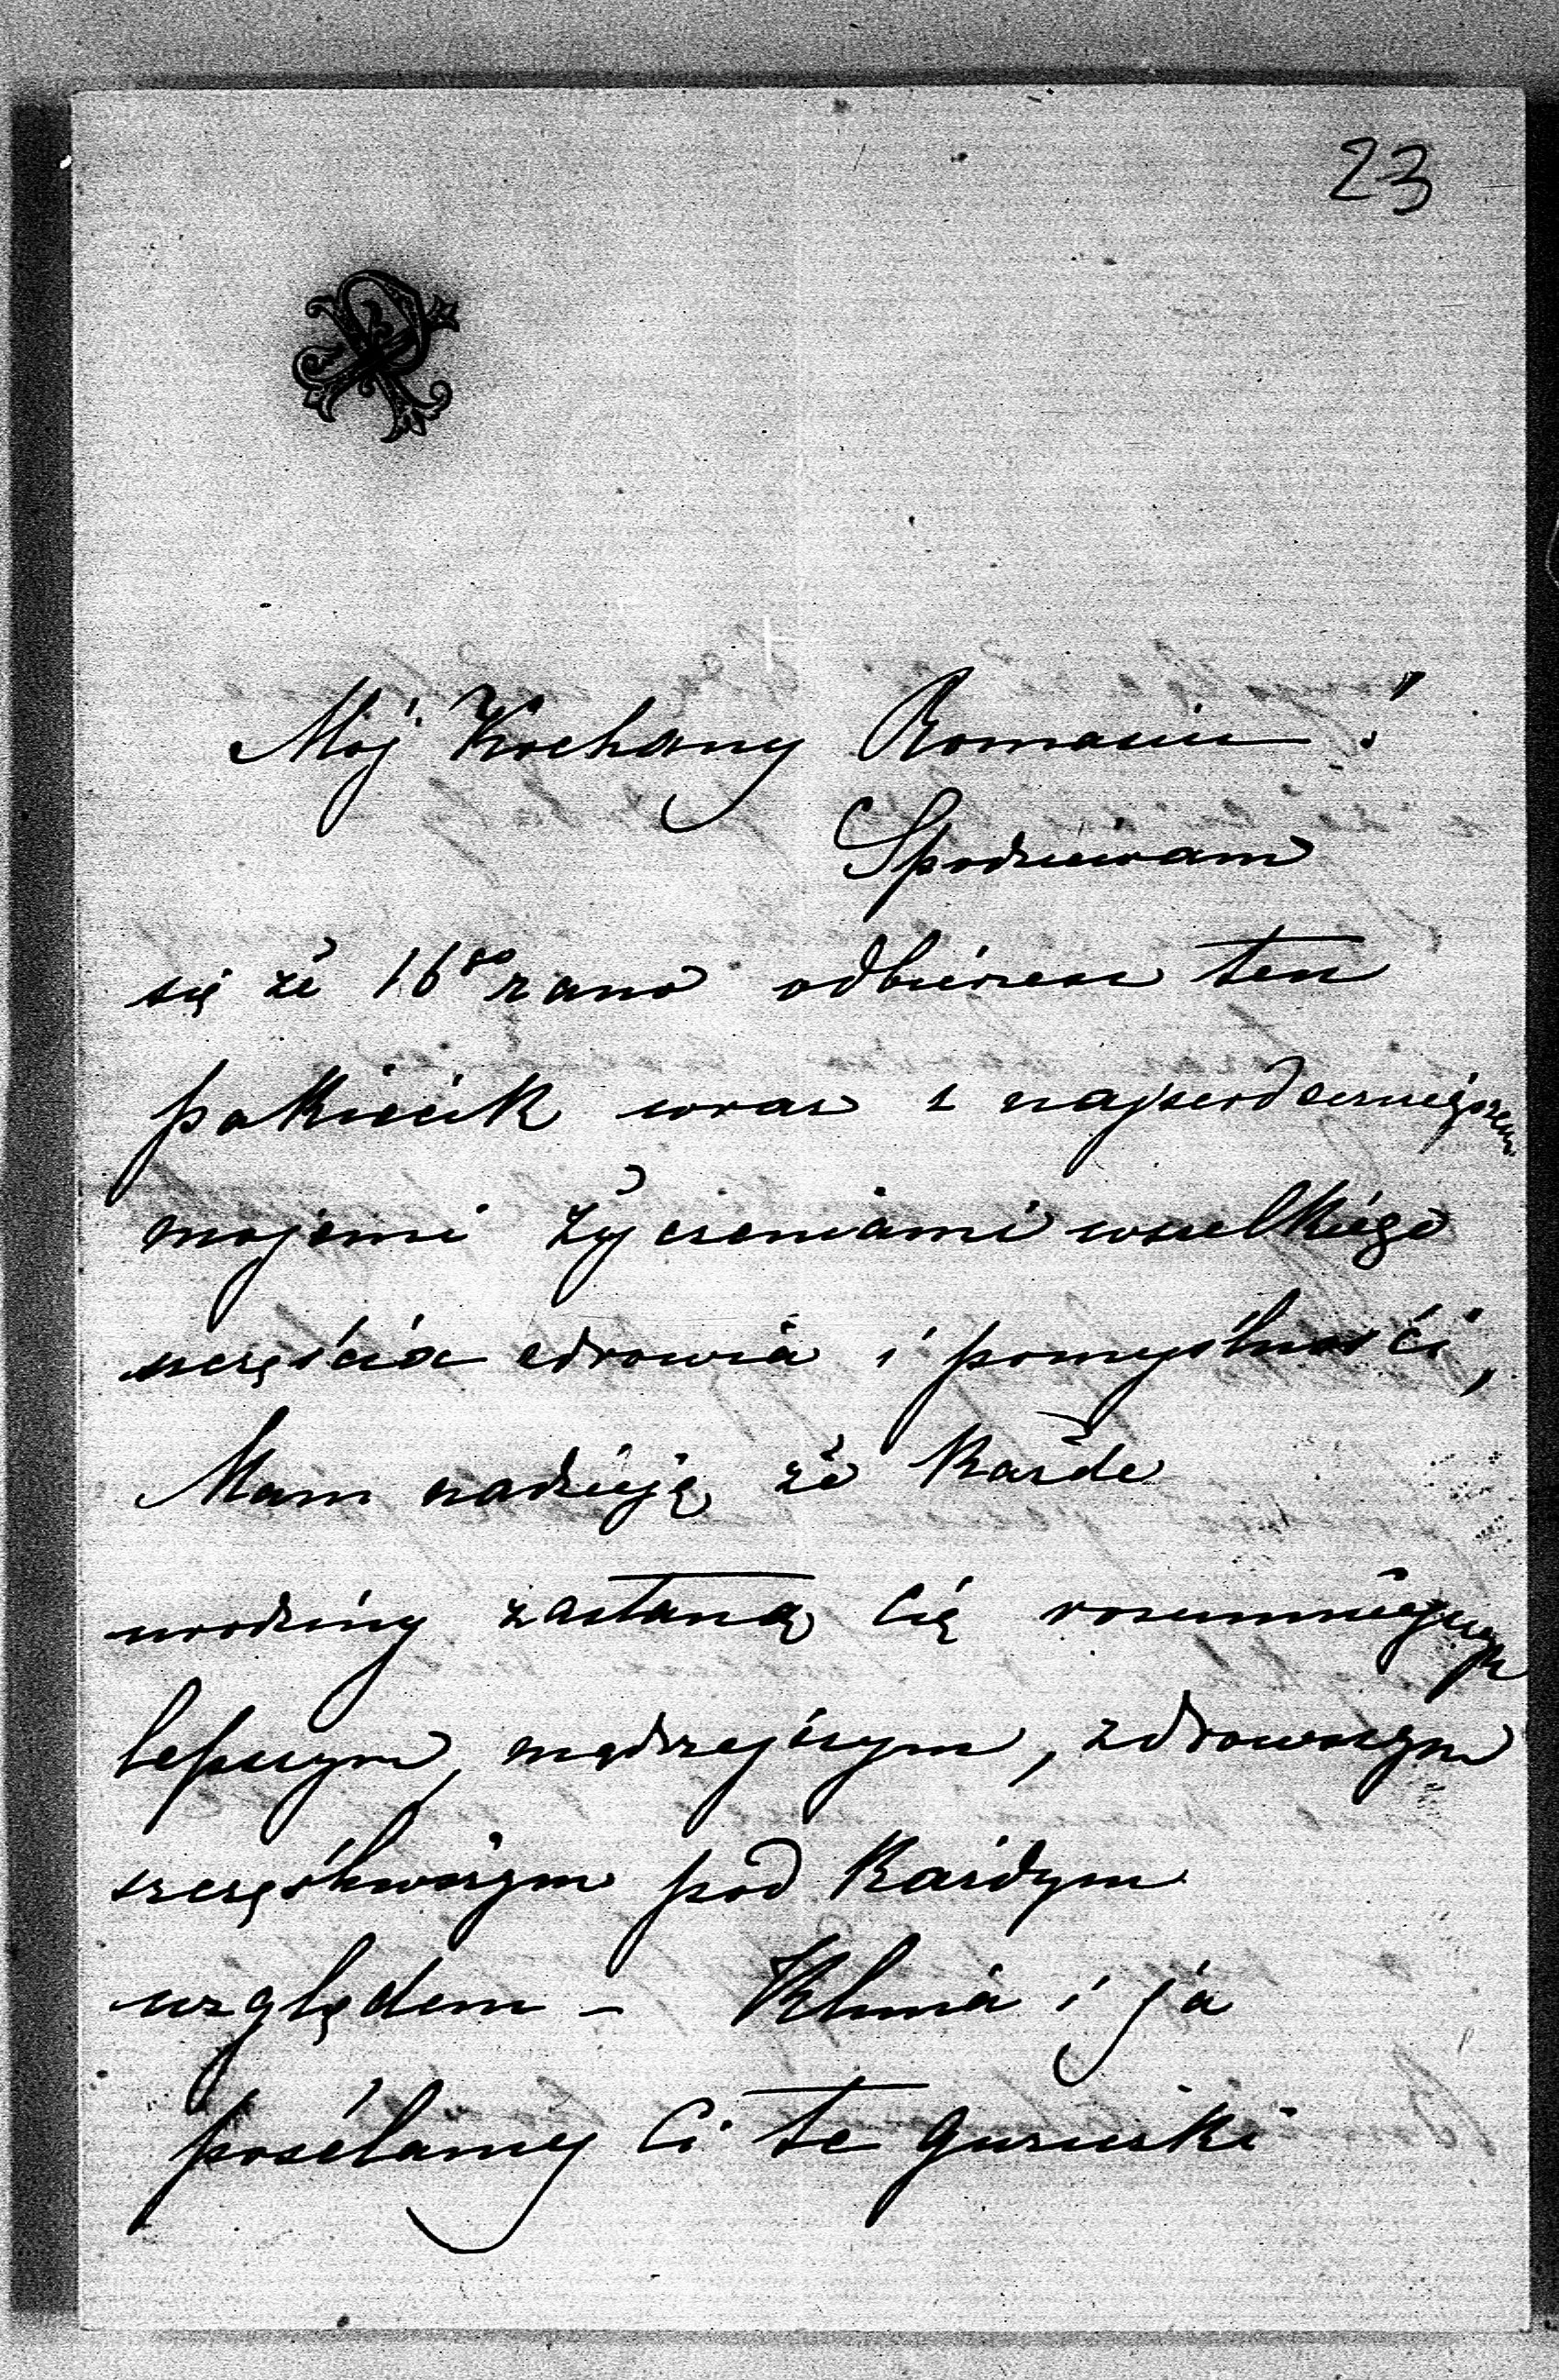 23
Mój Kochany Romanie!
Spodziewam
się że 16go rano odbierzesz ten
pakiecik wraz z najserdeczniejszem
mojemi życzeniami wszelkiego
szczęścia zdrowia i pomyślności,
Mam nadzieję że każde
urodziny zastaną Cię rozumniejszym
lepszym, mądrzejszym, zdrowszym
szczęśliwszym pod każdym
względem - Klimcia i ja
posélamy Ci te guziczki